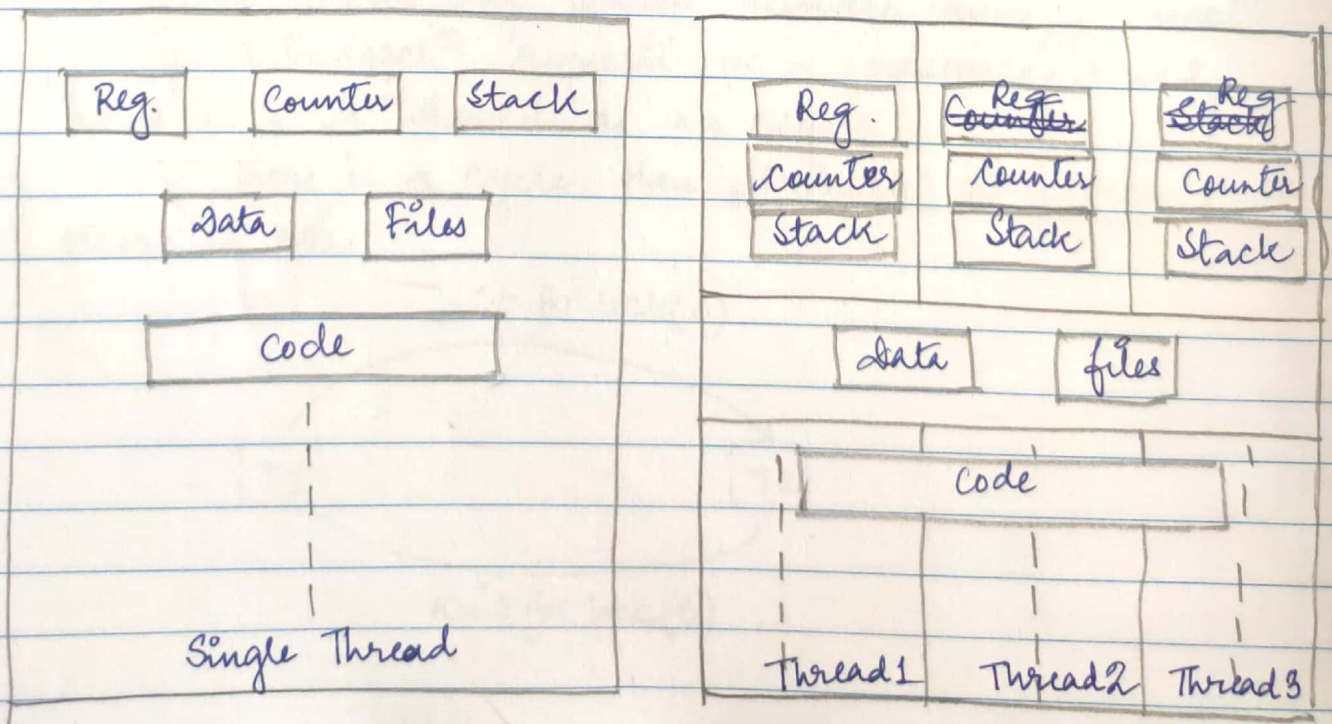 Reg. Counter Stack
Data Files
Code
Single Thread
Reg. Reg Reg
Counter Stack
Counter Counter Counter
Stack Stack Stack
Data files
Code
Thread 1 Thread 2 Thread 3